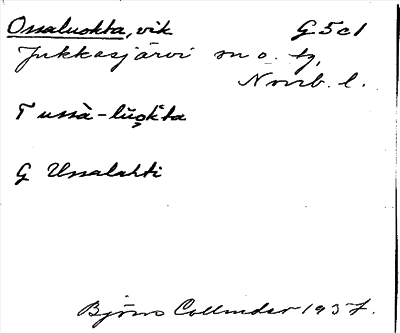 Ossaluokta, vik G5c1
Jukkasjärvi sn o. tg,
Norrb. l.
T ussà-lŭo̜kta
G Ussalahti
Björn Collinder 1937.